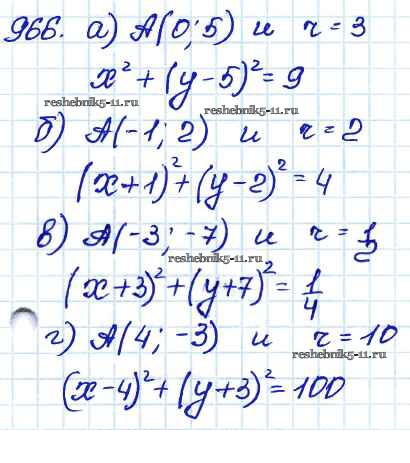 966. а) A(0; 5) и r = 3
x² + (y - 5)² = 9
reshebnik5-11.ru
reshebnik5-11.ru
б) A(-1; 2) и r = 2
(x + 1)² + (y - 2)² = 4
в) A(-3; -7) и r = 1/2
reshebnik5-11.ru
(x + 3)² + (y + 7)² = 1/4
г) A(4; -3) и r = 10
reshebnik5-11.ru
(x - 4)² + (y + 3)² = 100